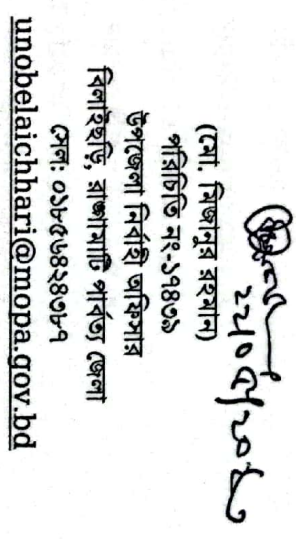 ২২/০৫/২০২
(মো. মিজানুর রহমান)
পরিচিতি নং-১৭৪৩৯
উপজেলা নির্বাহী অফিসার
বিলাইছড়ি, রাঙ্গামাটি পার্বত্য জেলা
সেল: ০১৮৫৬৪২৪৩৮৭
unobelaichhari@mopa.gov.bd